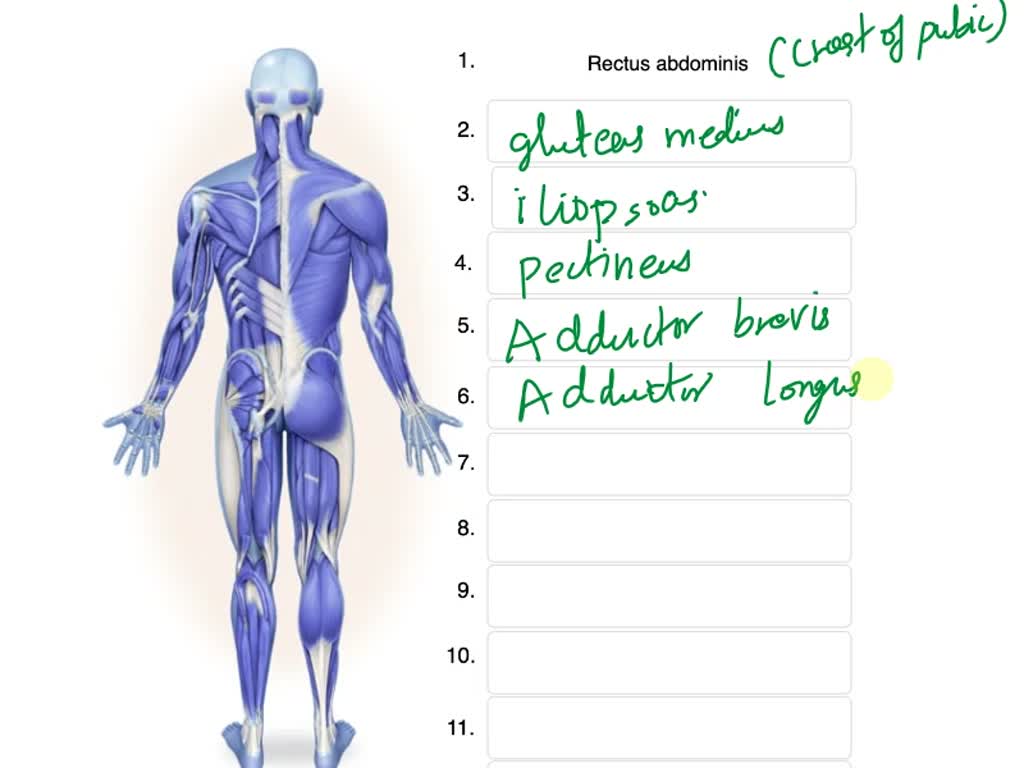 1. Rectus abdominis (Crest of pubic)
2. gluteas medius
3. iliopsoas.
4. pectineus
5. Adductor brevis
6. Adductor Longus
7.
8.
9.
10.
11.